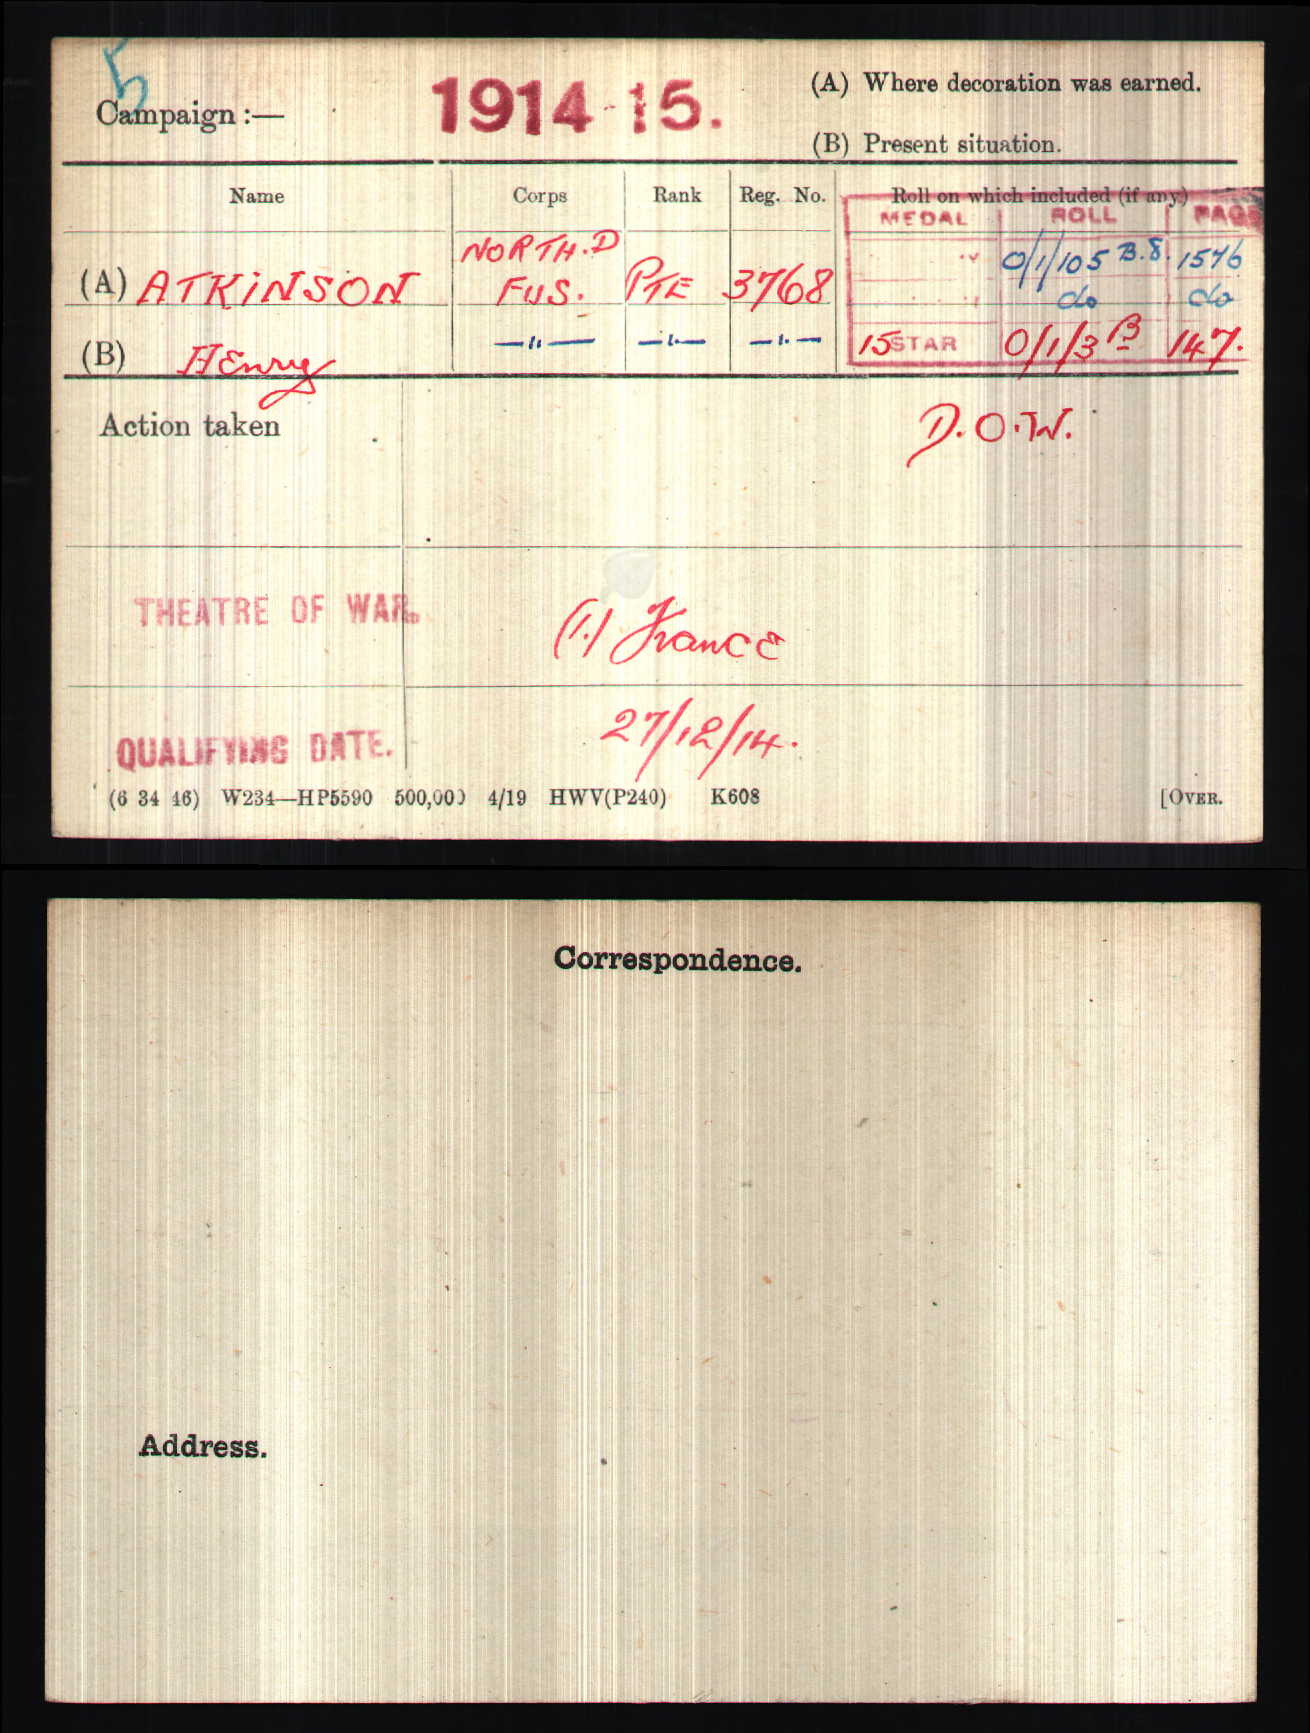 5
Campaign :— 1914-15. (A) Where decoration was earned.
(B) Present situation.
Name Corps Rank Reg. No. Roll on which included (if any)
MEDAL ROLL PAGE
(A) ATKINSON NORTH.D FUS. PTE 3768 0/1/105 B.8. 1576
do do
(B) Henry —"— —"— —"— 15 STAR 0/1/3 B 147.
Action taken D.O.W.
THEATRE OF WAR. (1.) France
QUALIFYING DATE. 27/12/14.
(6 34 46) W234—HP5590 500,000 4/19 HWV(P240) K608 [OVER.
Correspondence.
Address.